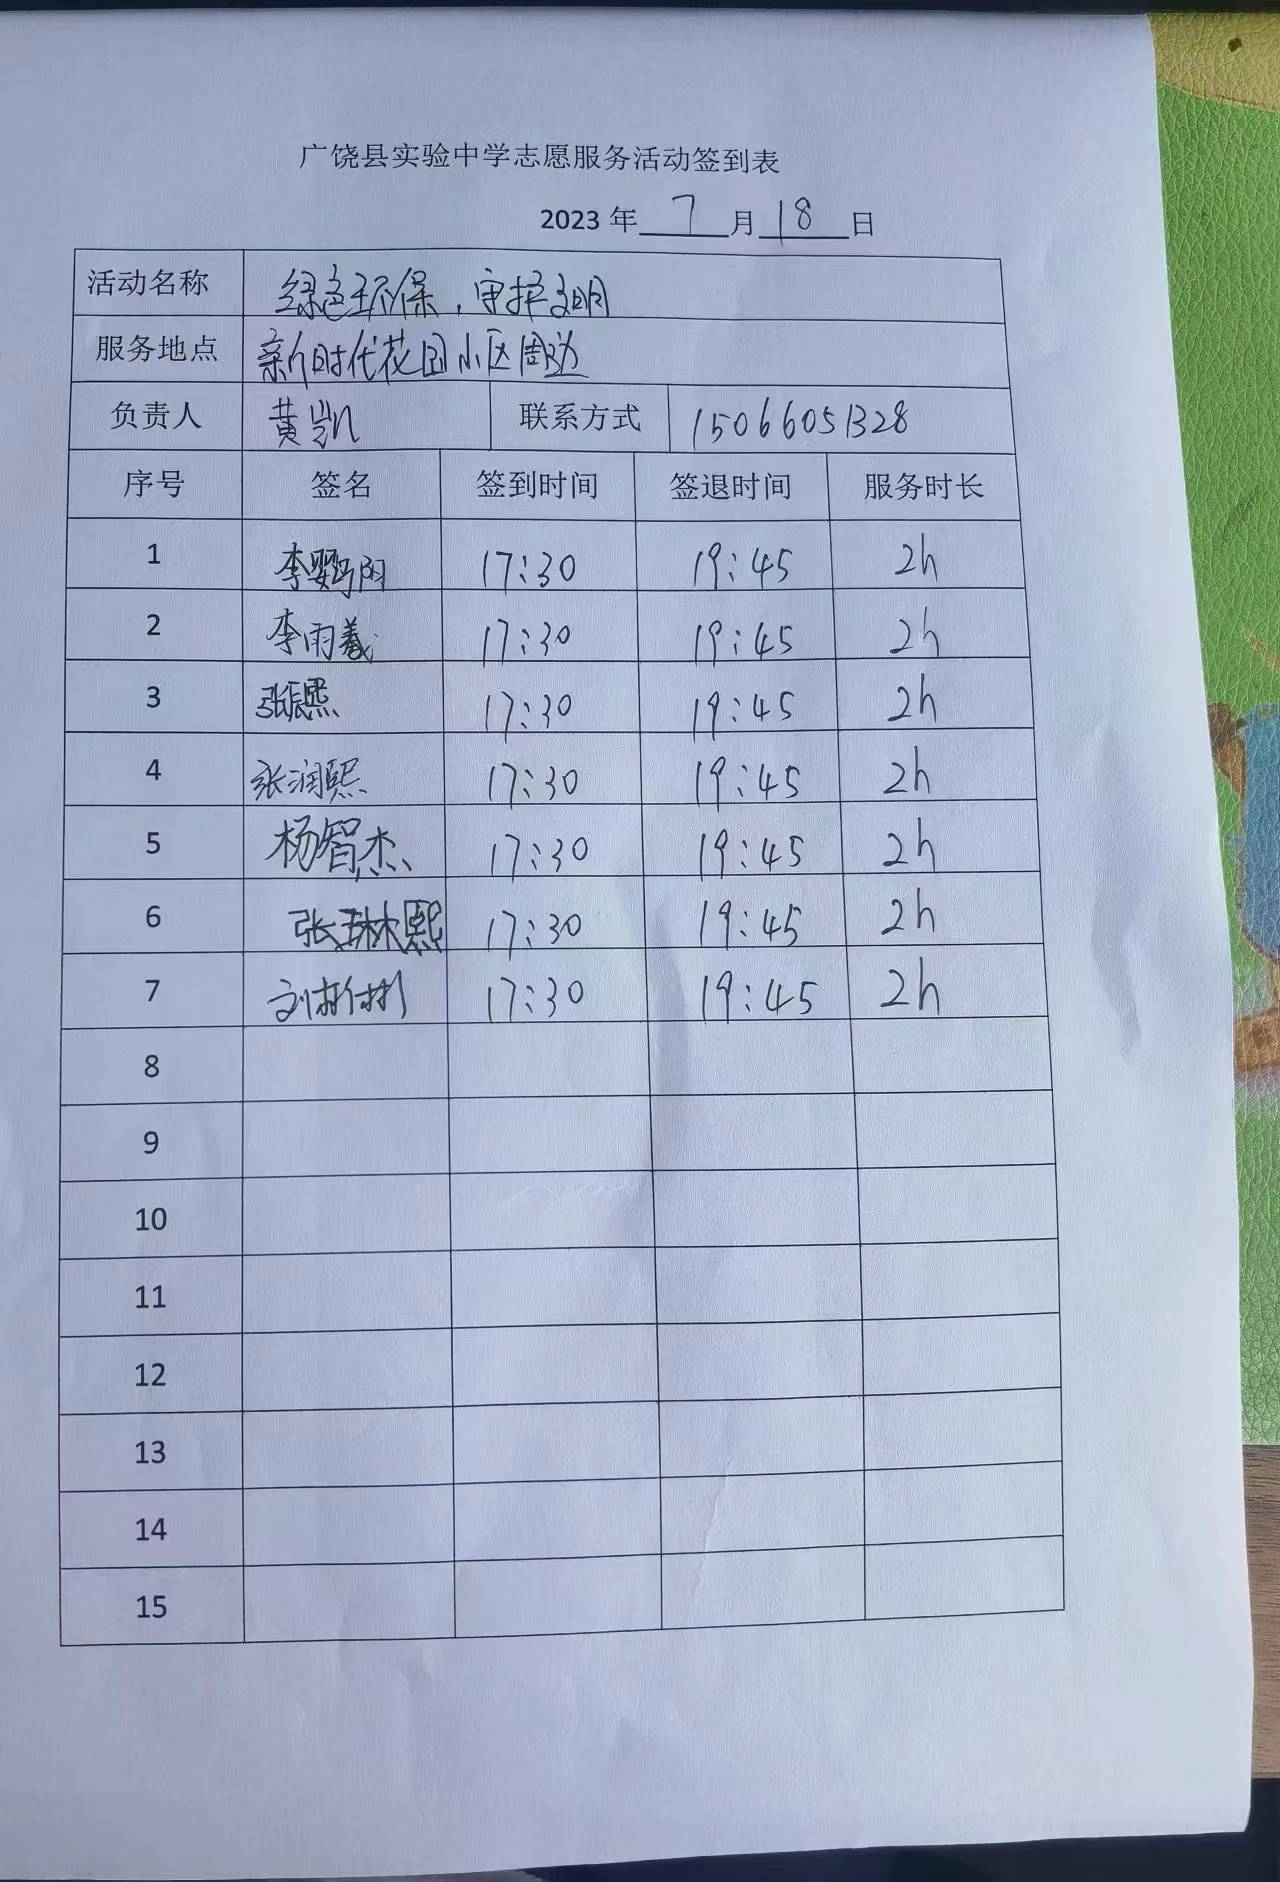 广饶县实验中学志愿服务活动签到表
2023 年 7 月 18 日
活动名称 绿色环保，守护文明
服务地点 新时代花园小区周边
负责人 黄凯 联系方式 15066051328
序号 签名 签到时间 签退时间 服务时长
1 17:30 19:45 2h
2 李雨羲 17:30 19:45 2h
3 张宸熙 17:30 19:45 2h
4 张润熙 17:30 19:45 2h
5 杨智杰 17:30 19:45 2h
6 张琳熙 17:30 19:45 2h
7 17:30 19:45 2h
8
9
10
11
12
13
14
15